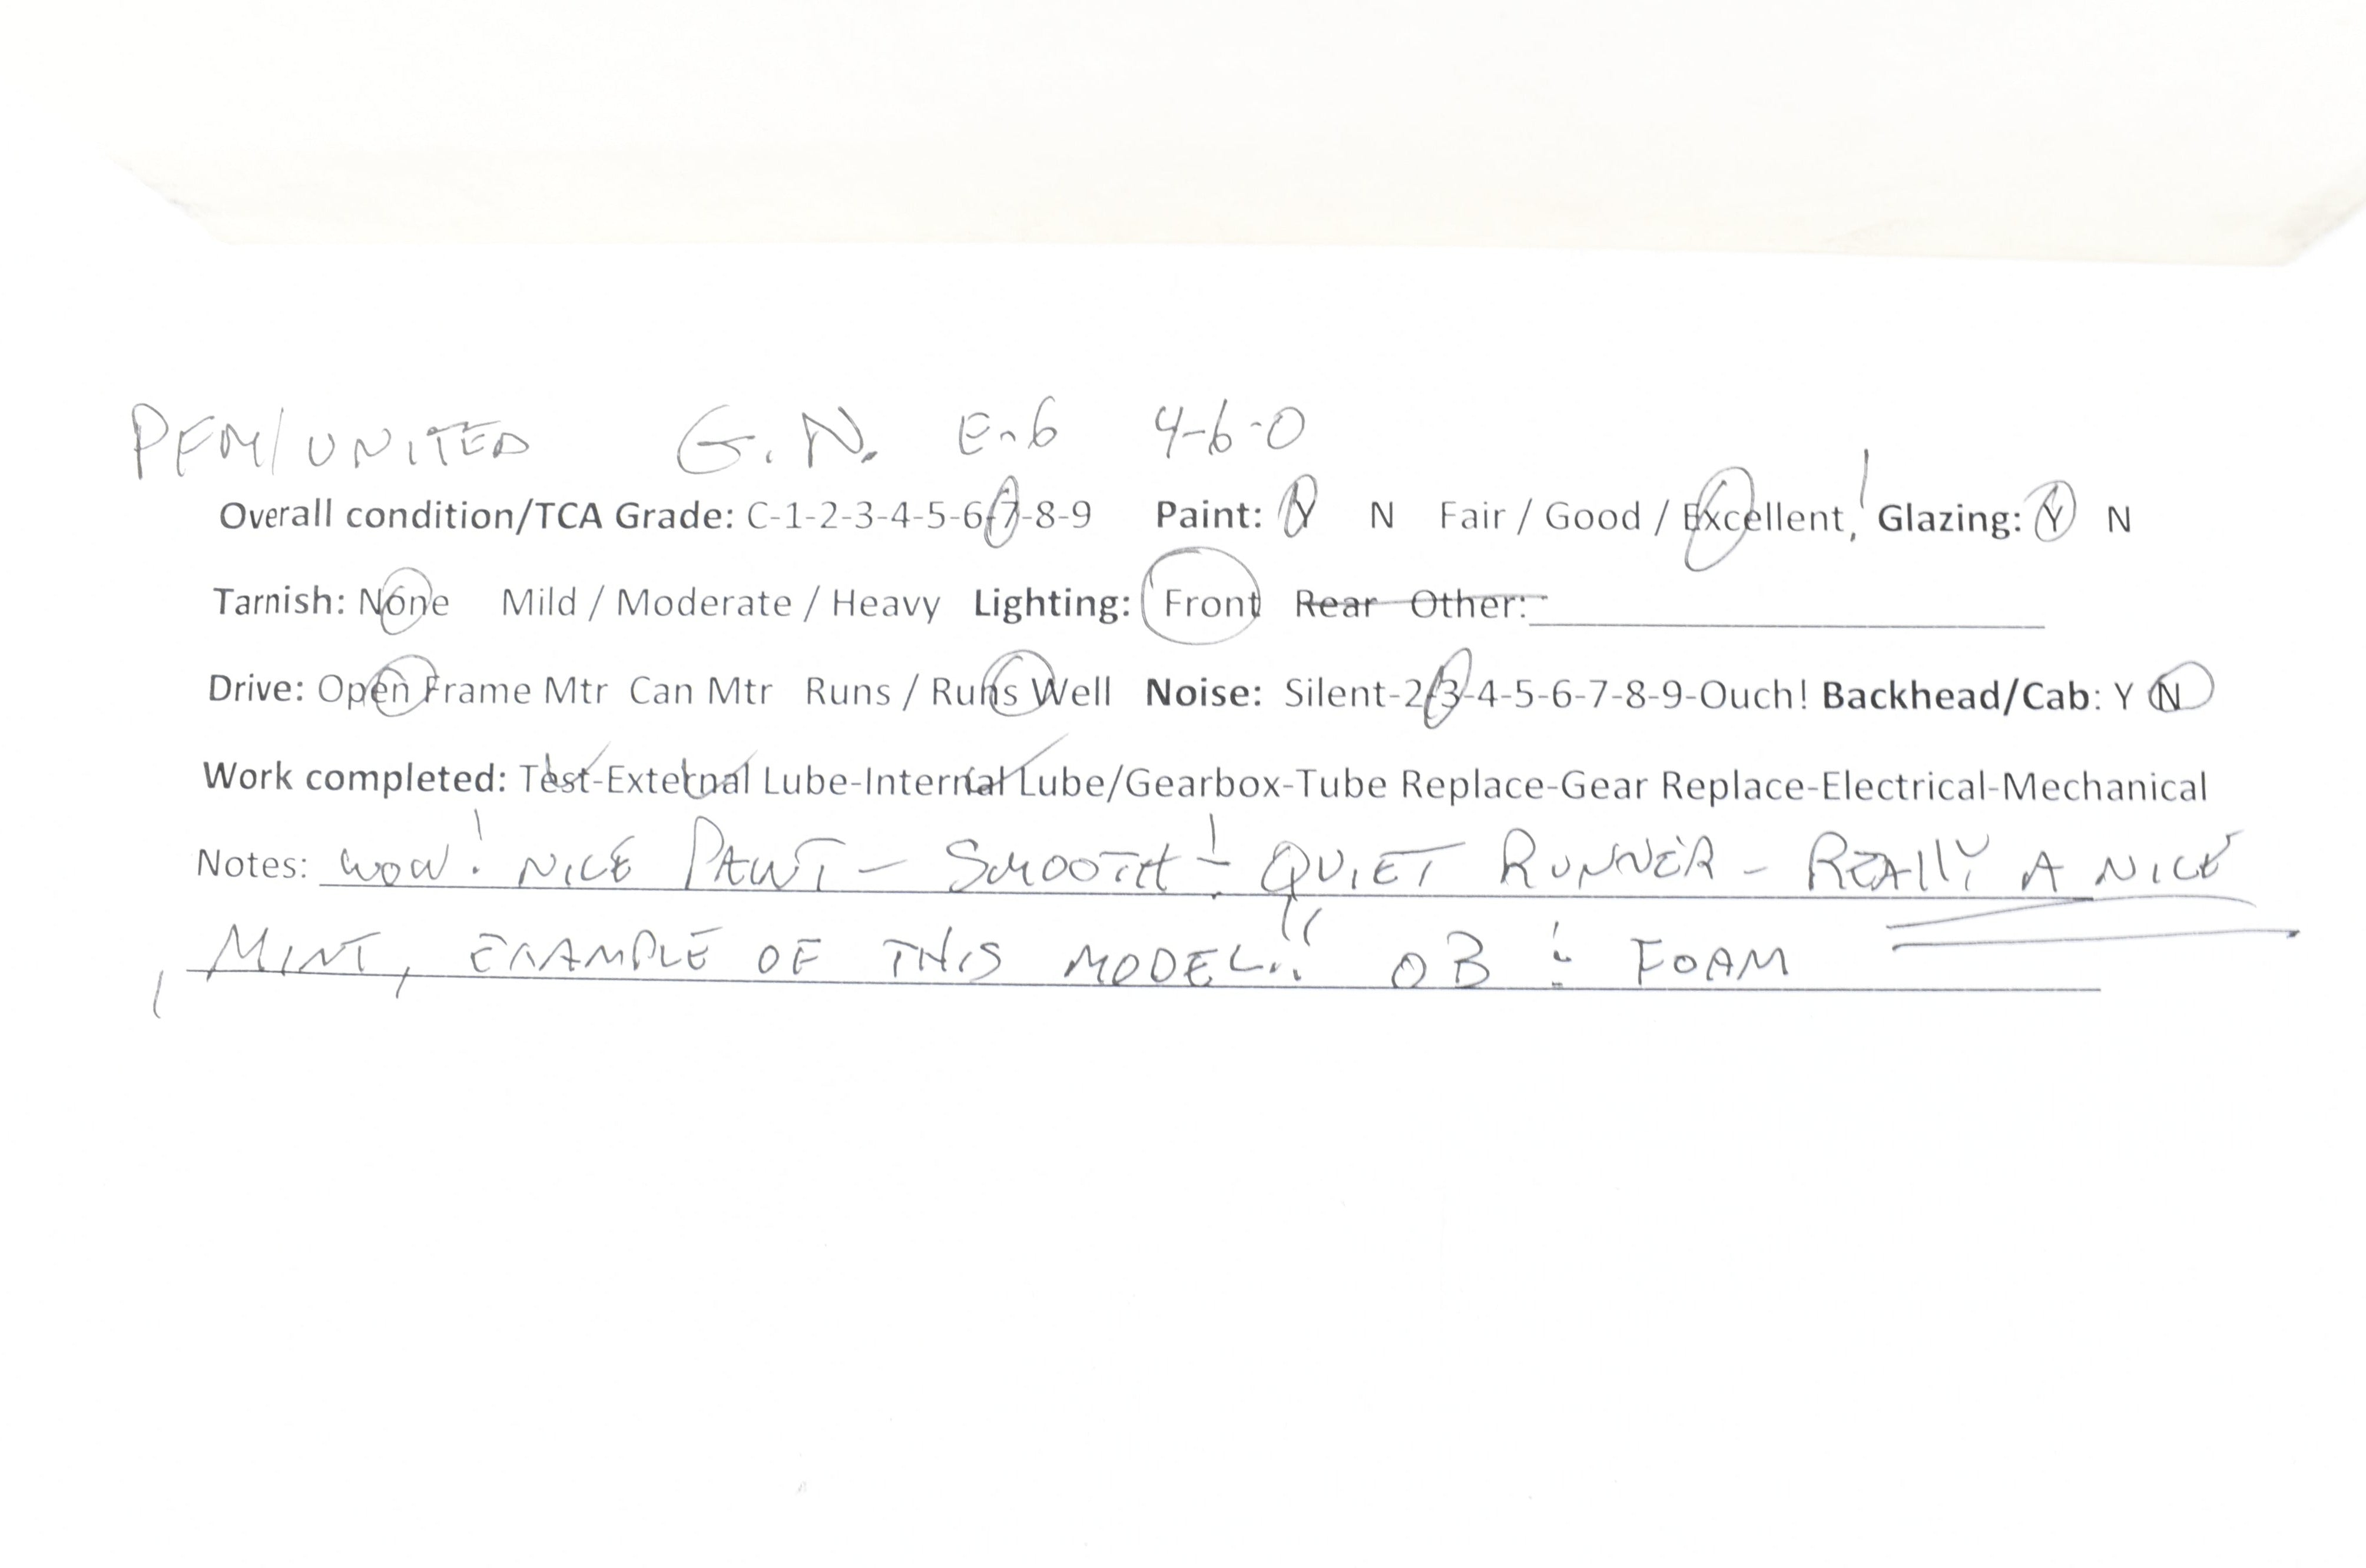 PFM/UNITED G.N. E-6 4-6-0
Overall condition/TCA Grade: C-1-2-3-4-5-6-7-8-9 Paint: Y N Fair / Good / Excellent, ! Glazing: Y N
Tarnish: None Mild / Moderate / Heavy Lighting: Front Rear Other:
Drive: Open Frame Mtr Can Mtr Runs / Runs Well Noise: Silent-2-3-4-5-6-7-8-9-Ouch! Backhead/Cab: Y N
Work completed: Test-External Lube-Internal Lube/Gearbox-Tube Replace-Gear Replace-Electrical-Mechanical
Notes: WOW! NICE PAINT - SMOOTH ! QUIET RUNNER - REALLY A NICE
MINT, EXAMPLE OF THIS MODEL!! OB : FOAM